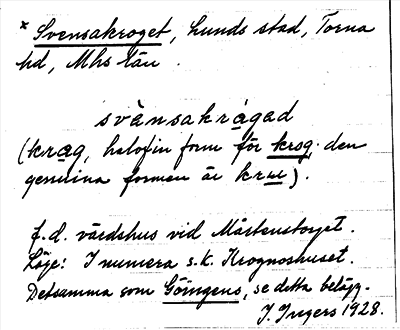 * Svensakroget, Lunds stad, Torna
hd, Mhs län.
svènsakrågad
(krag, halvfin form för krog; den
genuina formen är kru).
f.d. värdshus vid Mårtenstorget.
Läge: I numera s.k. Krognoshuset.
Detsamma som Göingens, se detta belägg.
I. Ingers 1928.